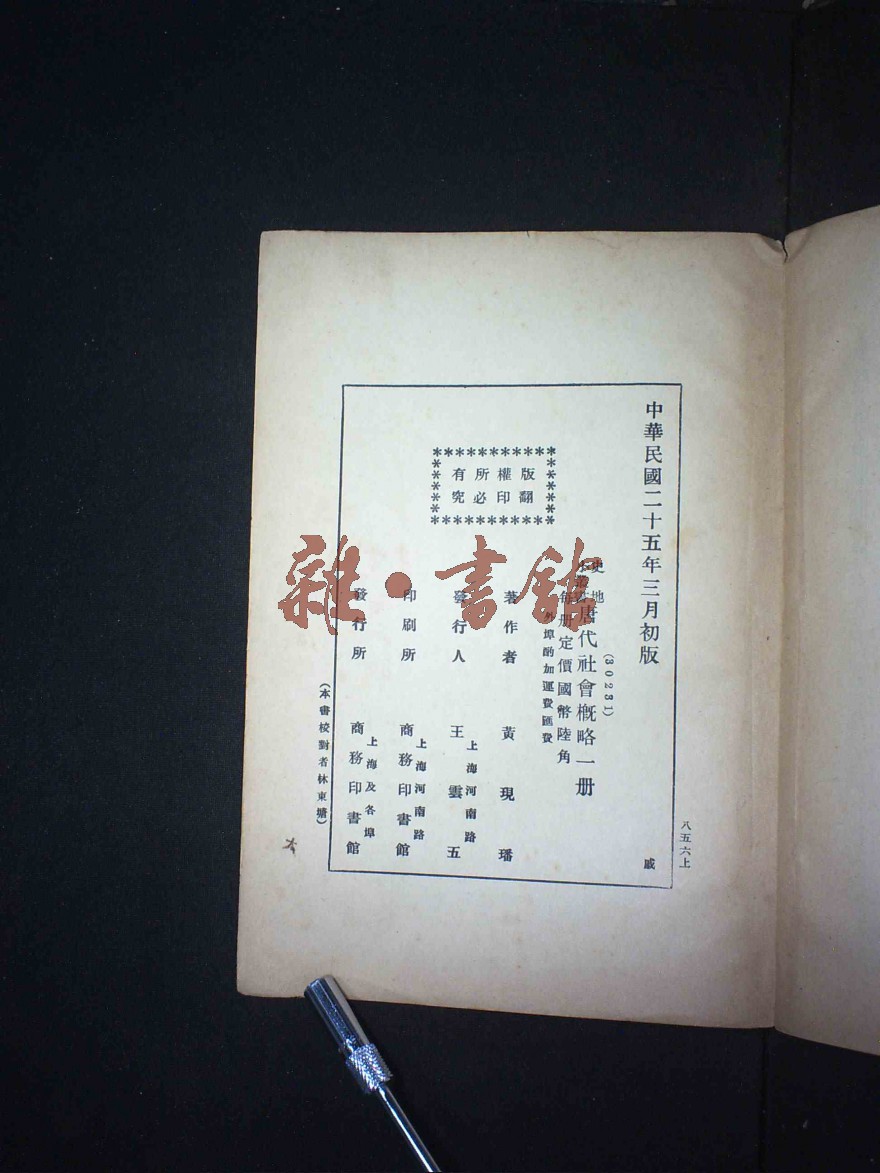 中華民國二十五年三月初版
戚
(30231)
史地
小叢書
唐代社會概略一册
每册定價國幣陸角
外埠酌加運費匯費
版權所有
翻印必究
著作者 黃現璠
發行人 王雲五
上海河南路
印刷所 商務印書館
上海河南路
發行所 商務印書館
上海及各埠
(本書校對者林東塘)
八五六上
雜·書館